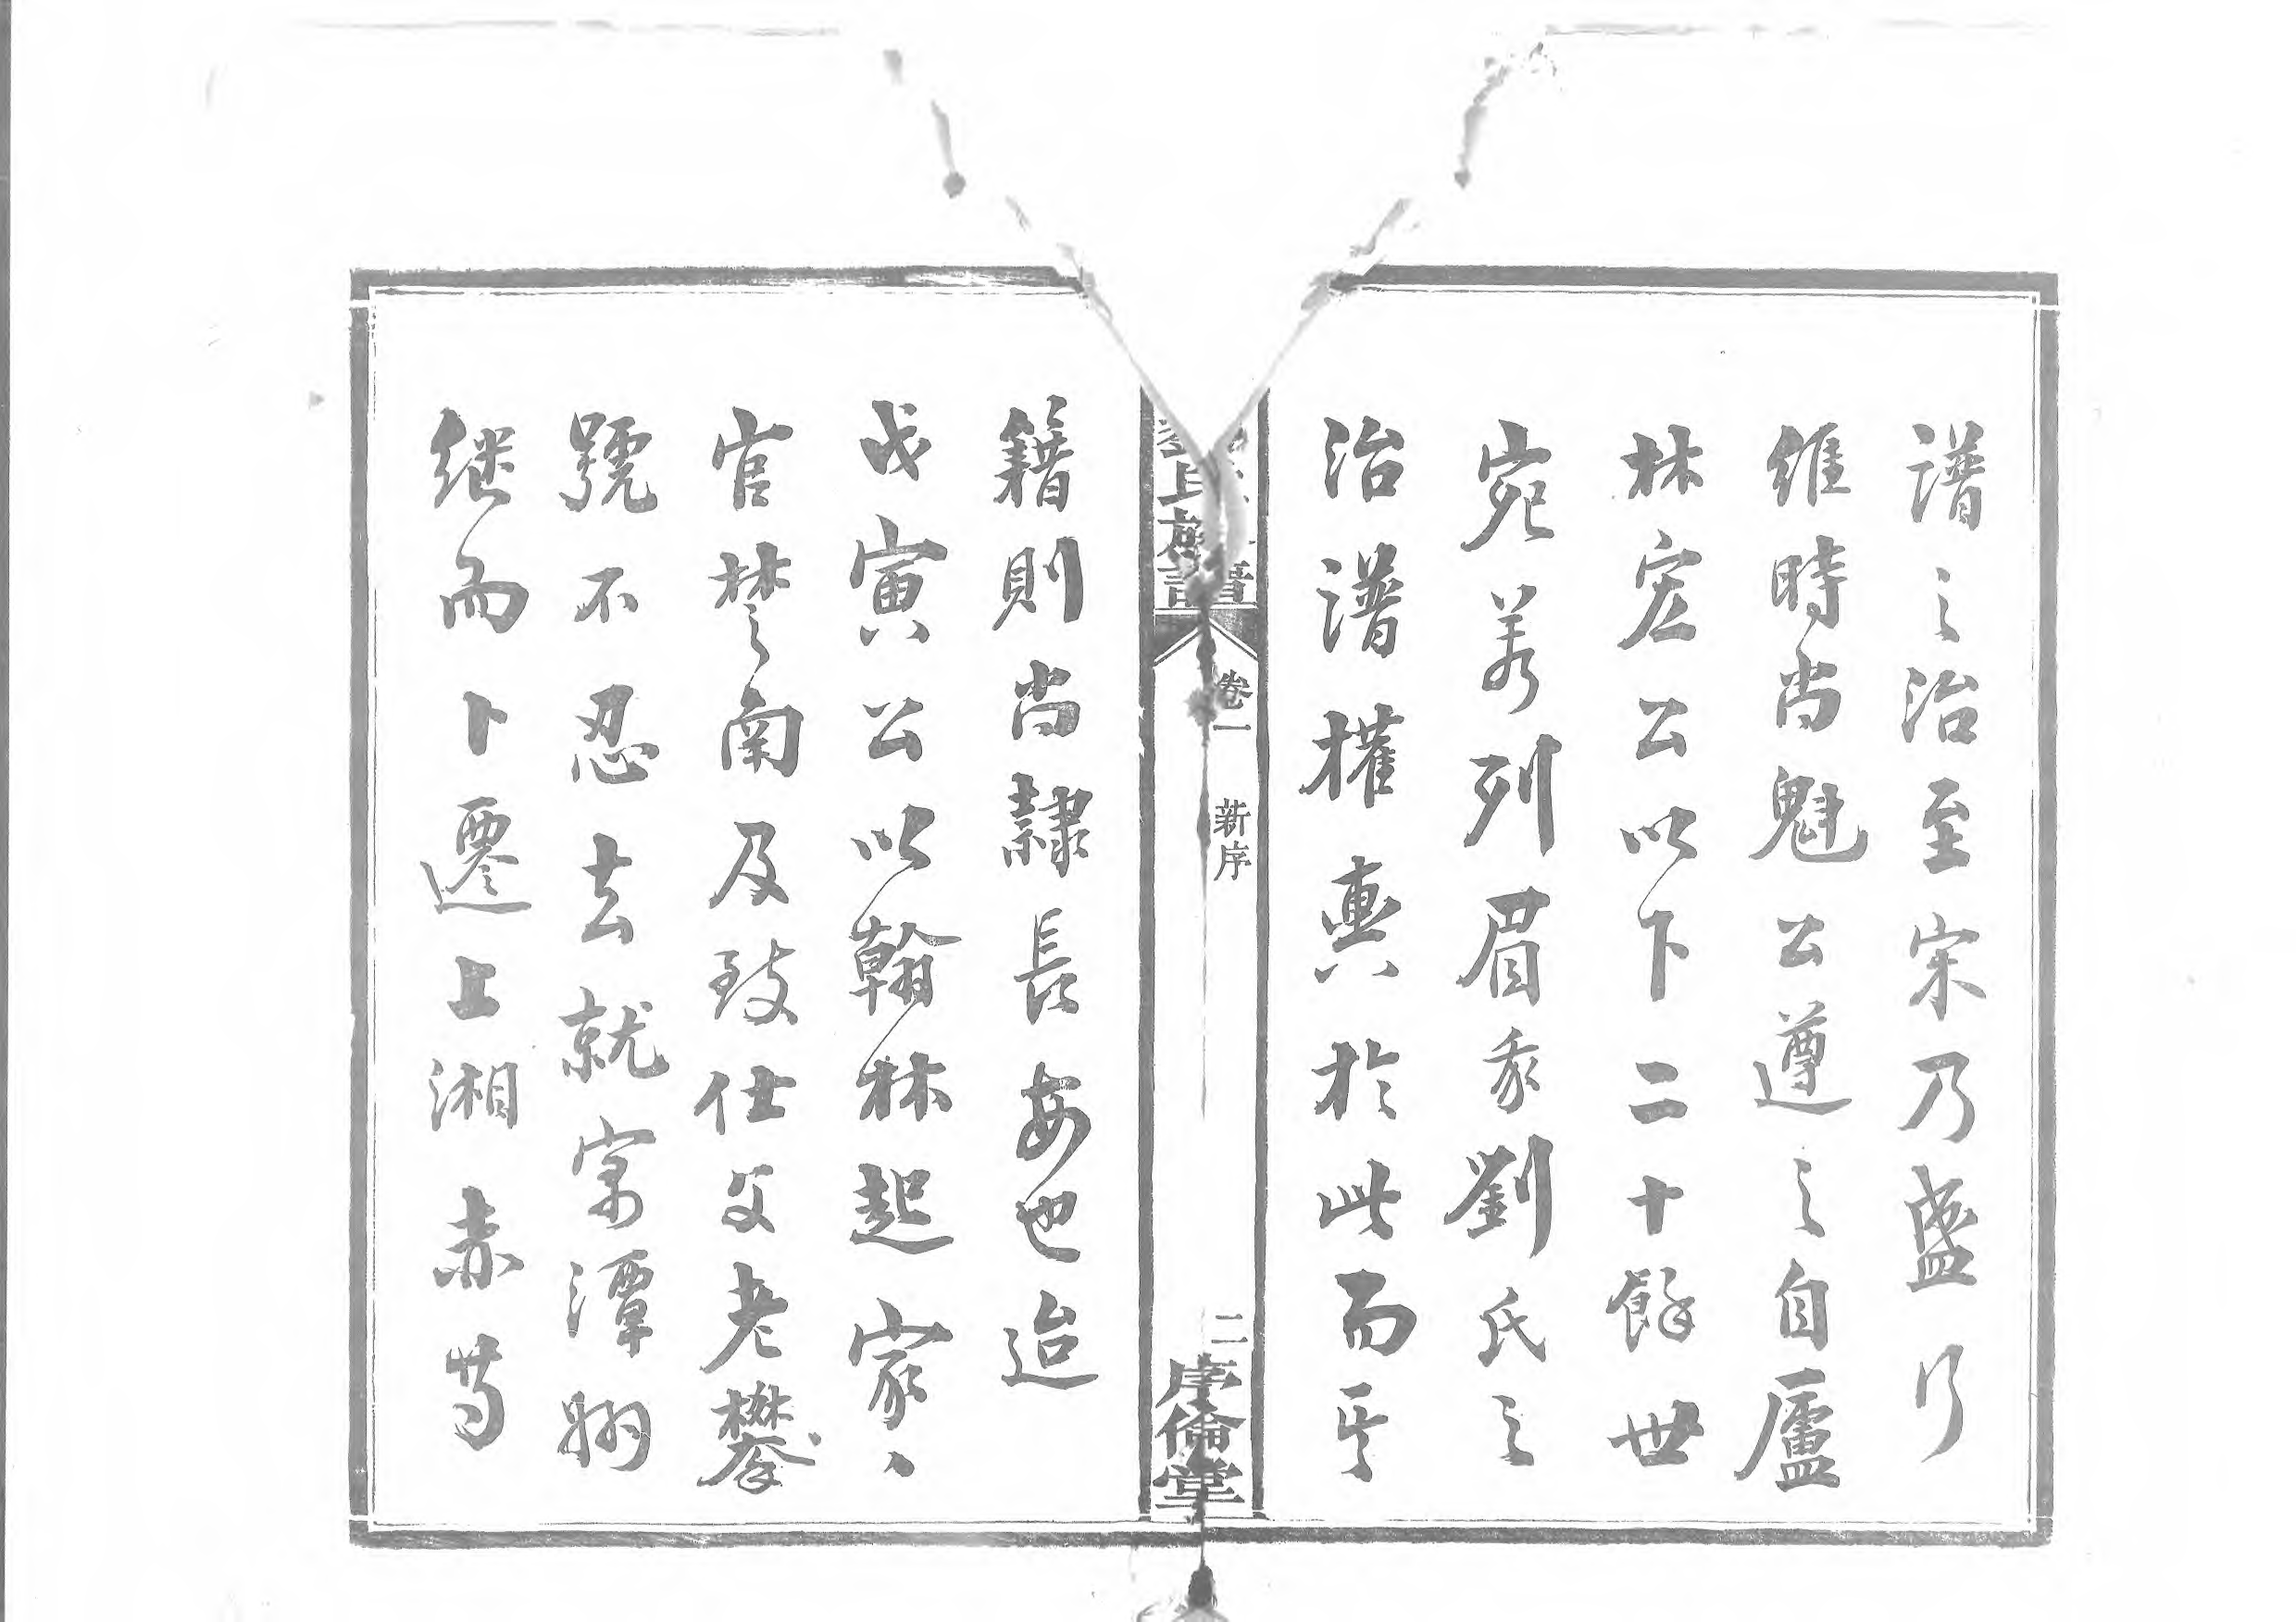 譜之治至宋乃盛行
維時尚魁公遵之自廬
林宏公以下二十餘世
宛若列眉我劉氏之
治譜權輿於此而其
籍則尚隸長安也迨
戊寅公以翰林起家
官楚南及致仕父老攀
號不忍去就家潭州
继而卜遷上湘
氏族譜
卷一 新序
二
序倫堂